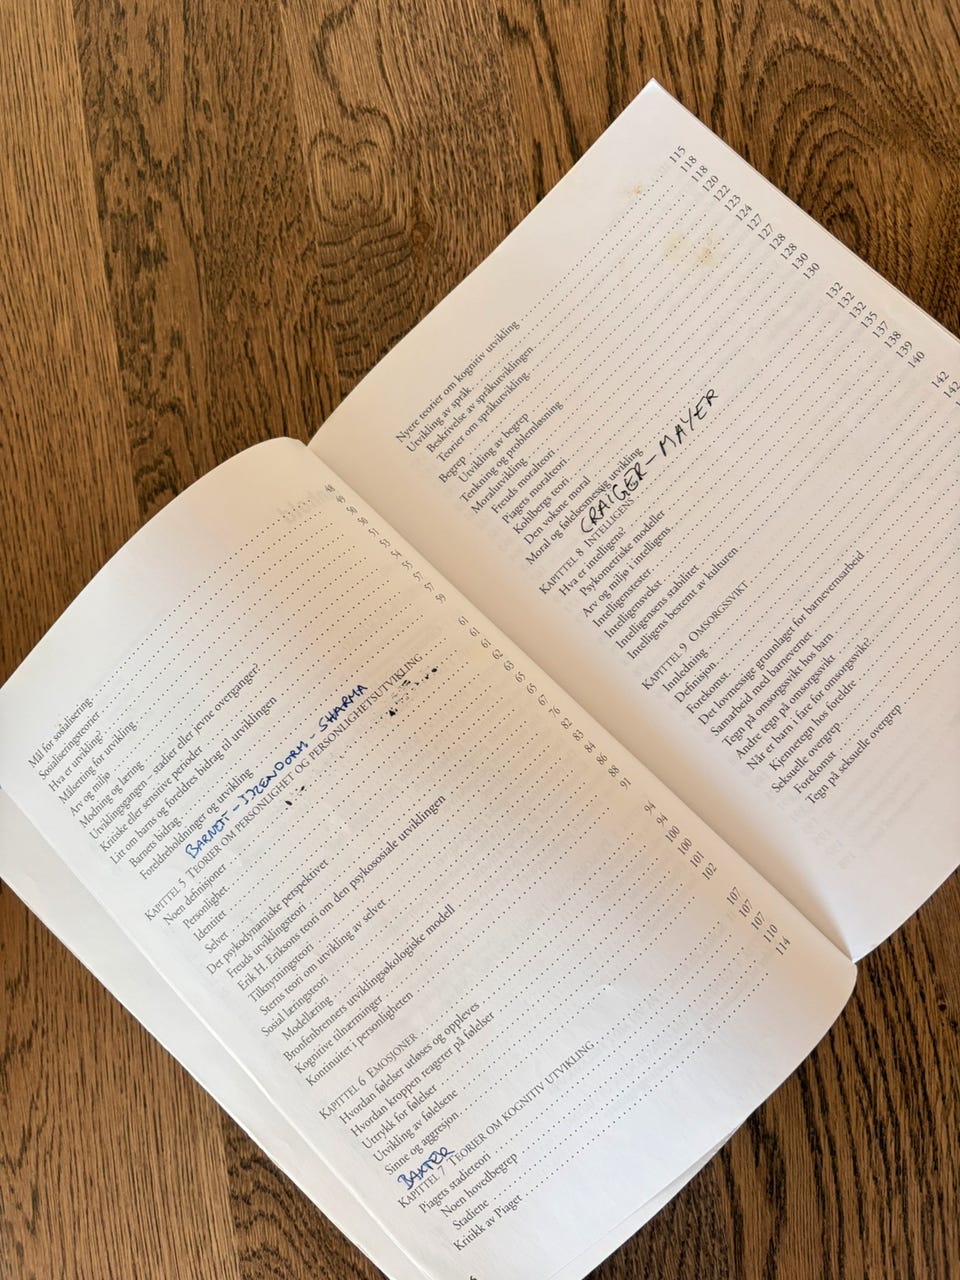 Mål for sosialisering 48
Sosialiseringsteorier 49
Hva er utvikling? 50
Målsetting for utvikling 50
Arv og miljø 51
Modning og læring 53
Utviklingsgangen – stadier eller jevne overganger? 54
Kritiske eller sensitive perioder 55
Litt om barns og foreldres bidrag til utviklingen 57
Barnets bidrag 57
Foreldreholdninger og utvikling 59
BARNETT - IJZENDORM - SHARMA
KAPITTEL 5 TEORIER OM PERSONLIGHET OG PERSONLIGHETSUTVIKLING 61
Noen definisjoner
Personlighet
Identitet
Selvet
Det psykodynamiske perspektivet
Freuds utviklingsteori
Erik H. Eriksons teori om den psykososiale utviklingen
Tilknytningsteori
Sterns teori om utvikling av selvet
Sosial læringsteori
Modellæring
Bronfenbrenners utviklingsøkologiske modell
Kognitive tilnærminger
Kontinuitet i personligheten 91
KAPITTEL 6 EMOSJONER 94
Hvordan følelser utløses og oppleves 94
Hvordan kroppen reagerer på følelser 100
Uttrykk for følelser 100
Utvikling av følelsene 101
Sinne og aggresjon 102
BAXTER
KAPITTEL 7 TEORIER OM KOGNITIV UTVIKLING 107
Piagets stadieteori 107
Noen hovedbegrep 107
Stadiene 110
Kritikk av Piaget 114
Nyere teorier om kognitiv utvikling 115
Utvikling av språk 118
Beskrivelse av språkutviklingen 118
Teorier om språkutvikling 120
Begrep 122
Utvikling av begrep 123
Tenkning og problemløsning 124
Moralutvikling 127
Freuds moralteori 127
Piagets moralteori 128
Kohlbergs teori 128
Den voksne moral 130
Moral og følelsesmessig utvikling 130
CRAIGER - MAYER
KAPITTEL 8 INTELLIGENS 132
Hva er intelligens? 132
Psykometriske modeller 132
Arv og miljø i intelligens 135
Intelligenstester 137
Intelligensvekst 138
Intelligensens stabilitet 139
Intelligens bestemt av kulturen 140
KAPITTEL 9 OMSORGSSVIKT 142
Innledning 142
Definisjon
Forekomst
Det lovmessige grunnlaget for barnevernsarbeid
Samarbeid med barnevernet
Tegn på omsorgsvikt hos barn
Andre tegn på omsorgsvikt
Når er barn i fare for omsorgsvikt?
Kjennetegn hos foreldre
Seksuelle overgrep
Forekomst
Tegn på seksuelle overgrep